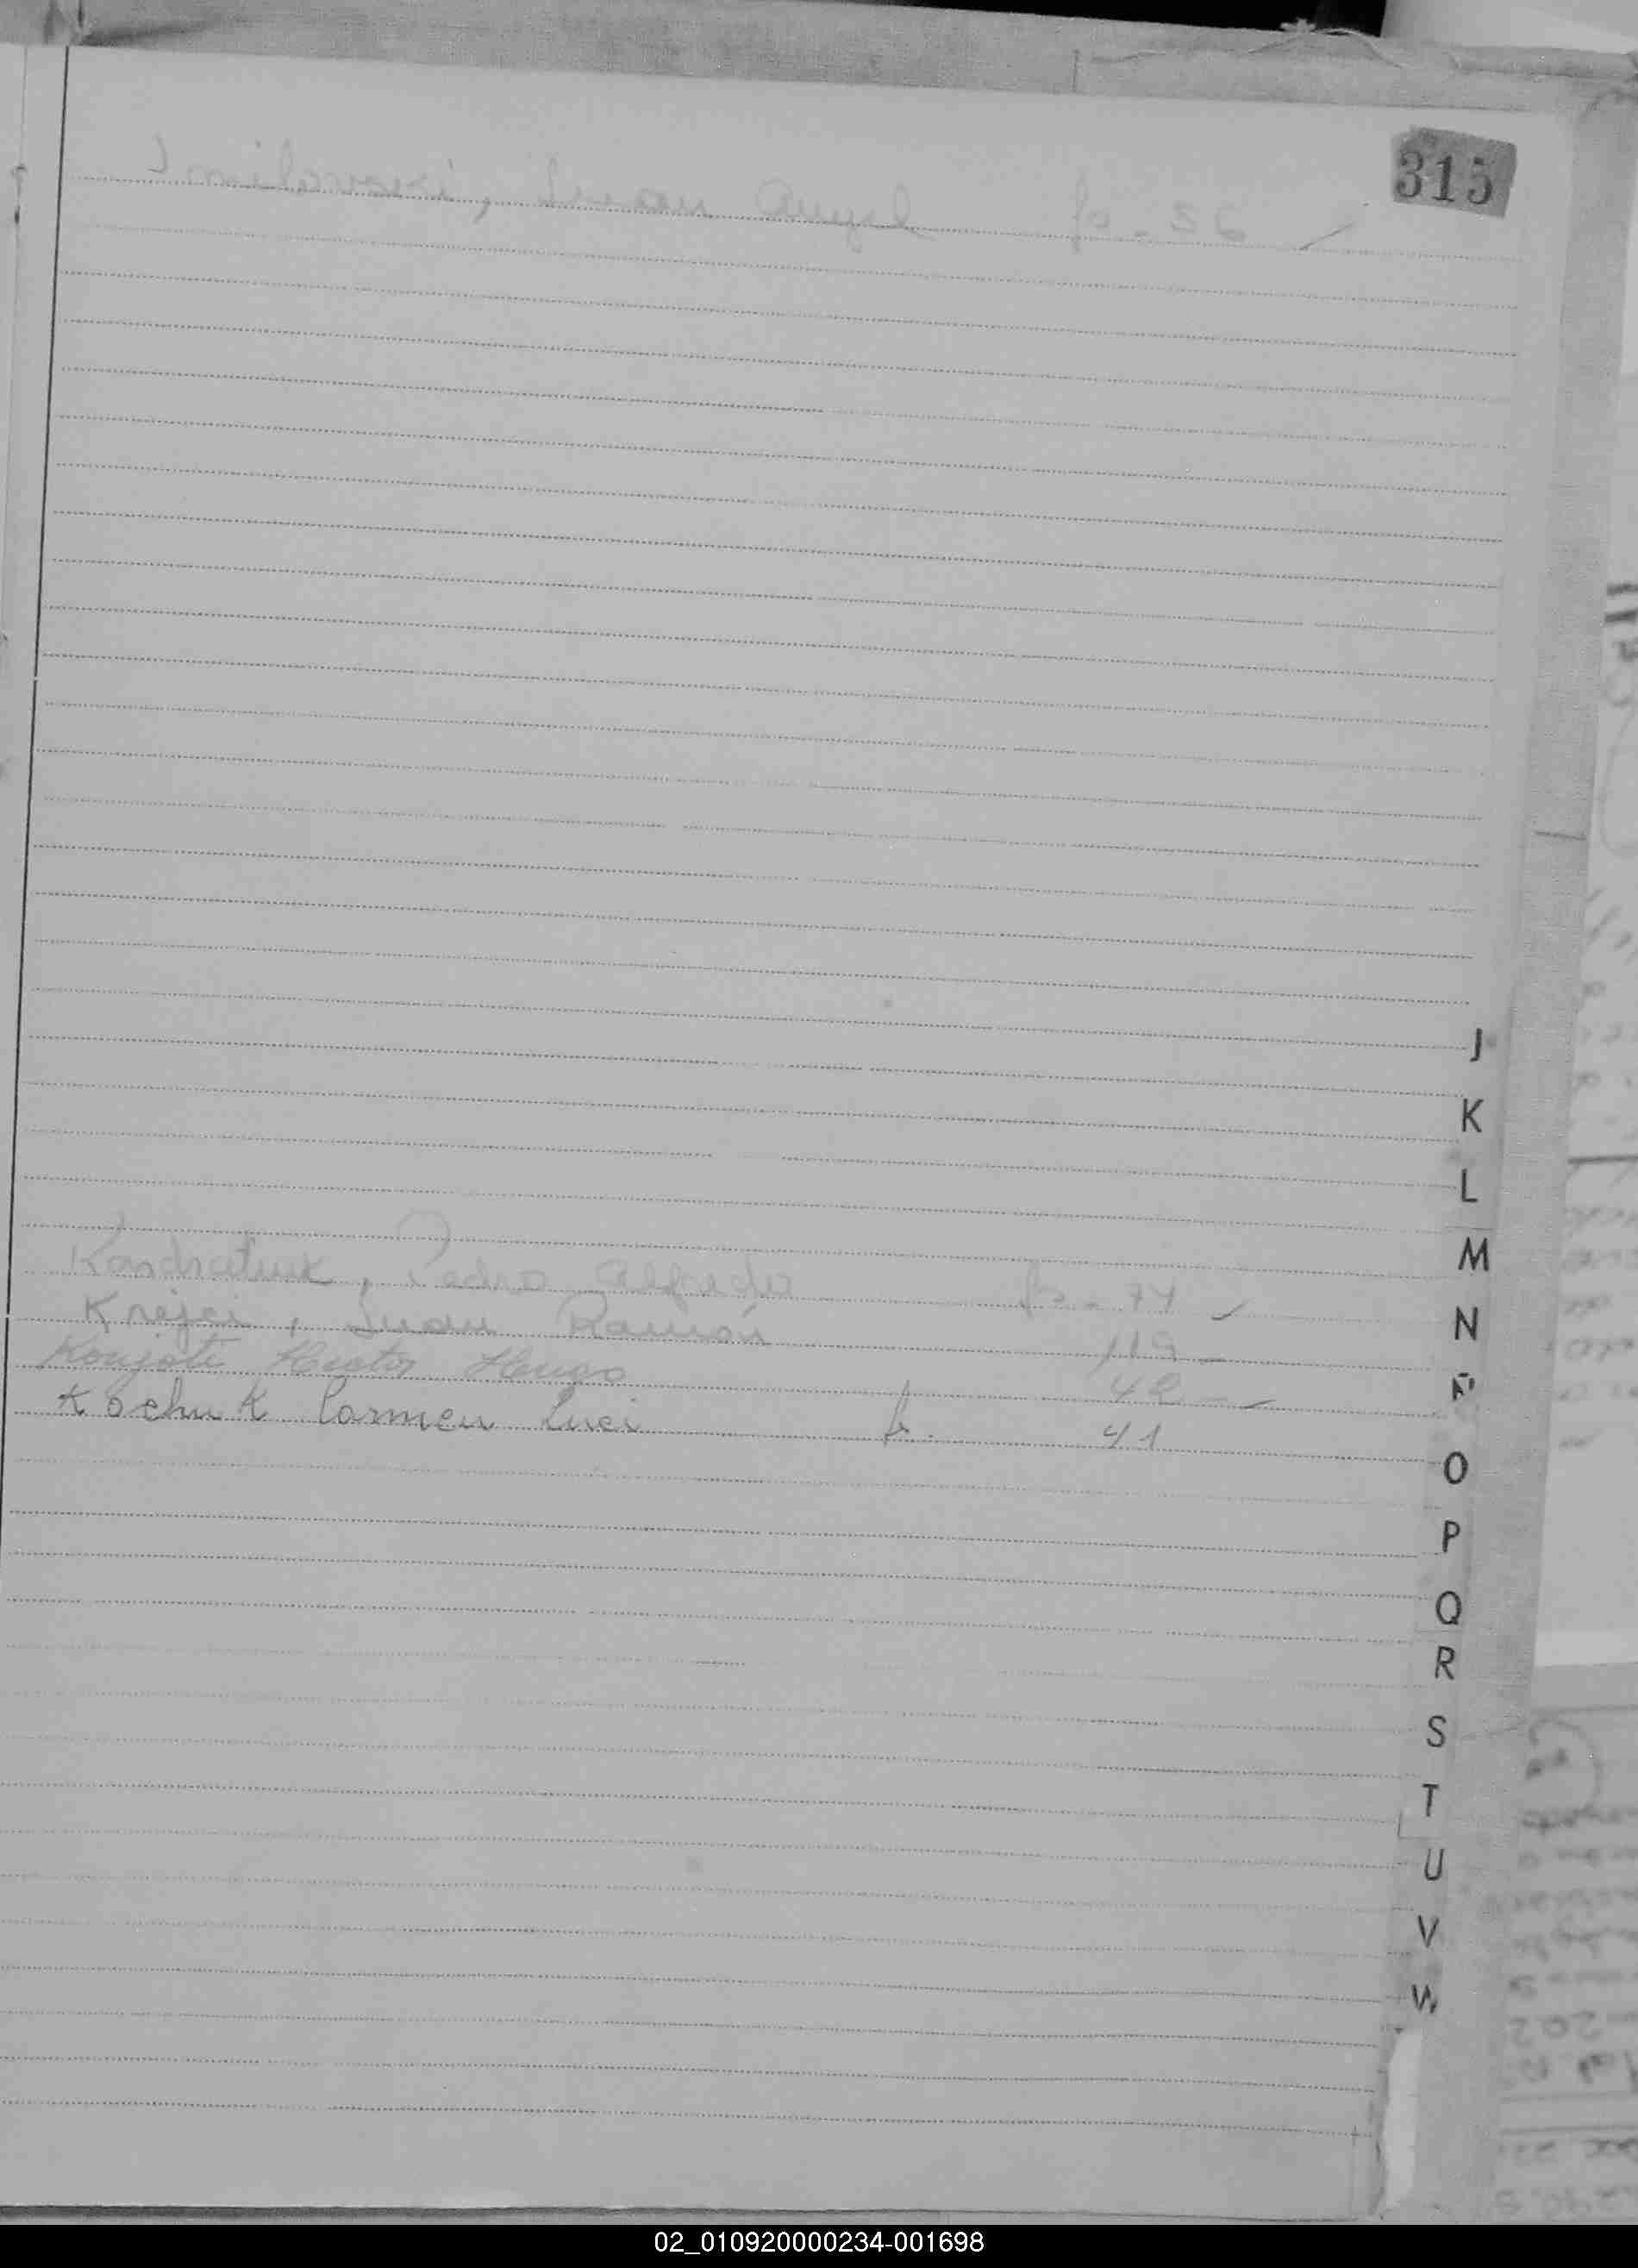 315
Juan Angel fo - 56
J
K
L
M
N
Ñ
Kondratiuk, Pedro Alfredo fo - 74
Krejci, Juan Ramón 119 -
Hector Hugo 42 -
Kochuk Carmen Luci f. 41
O
P
Q
R
S
T
U
V
W
02_010920000234-001698